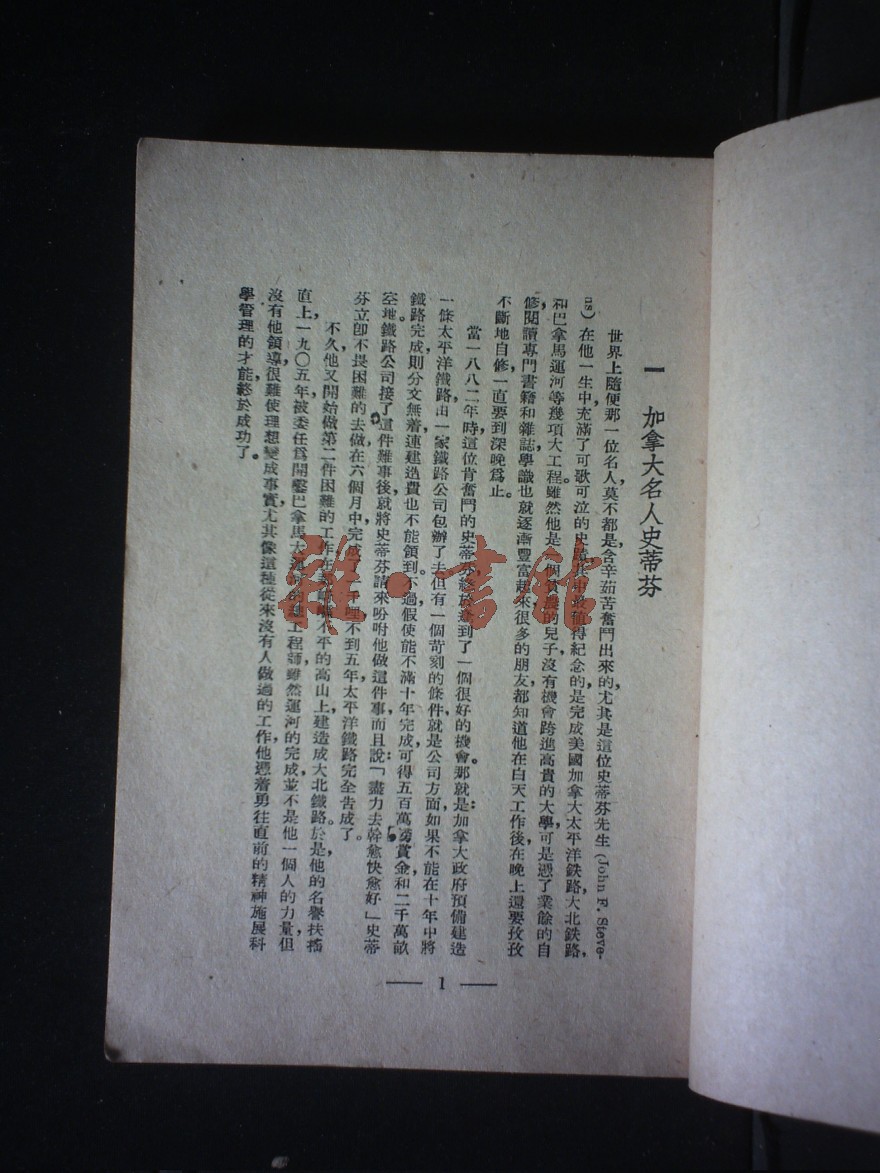 一　加拿大名人史蒂芬
世界上隨便那一位名人，莫不都是含辛茹苦奮鬥出來的，尤其是這位史蒂芬先生（John F. Steve-
ns）在他一生中充滿了可歌可泣的史蹟，其中最值得紀念的是完成美國加拿大太平洋鉄路，大北鉄路，
和巴拿馬運河等幾項大工程。雖然他是一個貧農的兒子，沒有機會跨進高貴的大學，可是憑了業餘的自
修，閱讀專門書籍和雜誌，學識也就逐漸豐富起來，很多的朋友都知道他在白天工作後，在晚上還要孜孜
不斷地自修，一直要到深晚爲止。
當一八八二年時，這位肯奮鬥的史蒂芬，終於達到了一個很好的機會。那就是加拿大政府預備建造
一條太平洋鐵路，由一家鐵路公司包辦了去，但有一個苛刻的條件：就是公司方面如果不能在十年中將
鐵路完成，則分文無着，連建造費也不能領到，不過假使能不滿十年完成，可得五百萬鎊賞金和二千萬畝
空地。鐵路公司接了這件難事後，就將史蒂芬請來，吩咐他做這件事，而且說：「盡力去幹，愈快愈好」史蒂
芬立卽不畏困難的去做，在六個月中完成了一千哩，不到五年，太平洋鐵路完全告成了。
不久他又開始做第二件困難的工作，在不平的高山上，建造成大北鐵路。於是他的名譽扶搖
直上，一九〇五年被委任爲開鑿巴拿馬大運河的總工程師，雖然運河的完成，並不是他一個人的力量，但
沒有他領導，很難使理想變成事實，尤其像這種從來沒有人做過的工作，他憑着勇往直前的精神，施展科
學管理的才能，終於成功了。
— 1 —
雜·書館